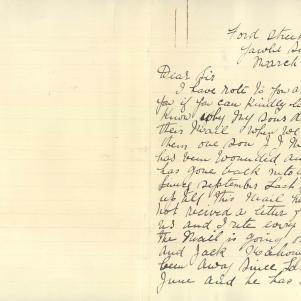 Ford Stre
March
Dear Sir
I have rote to you a
you if you can kindly le
know why My Sons d
their Mail When we
them one son J J M
has been Wounded an
has gone back into
since September Last
up till this Mail he
not recived a letter f
us and I rite every
the Mail is going o
and Jack
been away since
June and he has